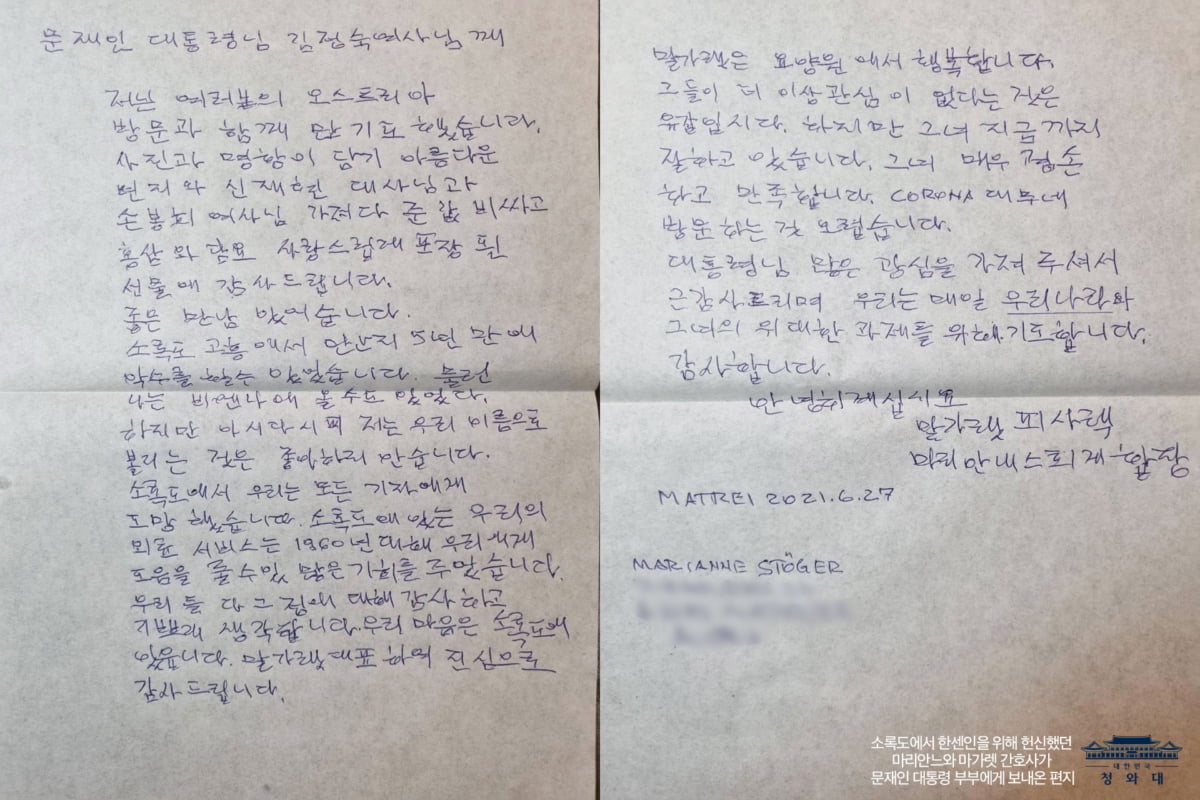 문재인 대통령님 김정숙여사님 께
저는 여러분의 오스트리아
방문과 함께 만 기표 했습니다.
사진과 명함이 담기 아름다운
편지와 신재현 대사님과
손봉희 여사님 가져다 준 값 비싸고
홍삼와 담요 사랑스럽게 포장 된
선물에 감사 드립니다.
좋은 만남 있어습니다.
소록도 고흥에서 만난지 5년 만에
악수를 할수 있었습니다. 물런
나는 비엔나에 올수도 있었다.
하지만 아시다시피 저는 우리 이름으로
불리는 것은 좋아하지 안습니다.
소록도에서 우리는 모든 기자에게
도망 했습니다. 소록도에 있는 우리의
외료 서비스는 1960년 대해 우리에게
도음을 줄 수 있 많은 기회를 주었습니다.
우리 둘 다 그 점에 대해 감사 하고
기쁘게 생각합니다. 우리 마음은 소록도에
있습니다. 말가렛 대표 하여 진심으로
감사 드립니다.
말가렛은 요양원 에서 행복합니다.
그들이 더 이상 관심 이 없다는 것은
유감입시다. 하지만 그녀 지금 까지
잘하고 있습니다. 그녀 매우 겸손
하고 만족합니다. CORONA 때무네
방문 하는 것 오렵습니다.
대통령님 많은 관심을 가져 주셔서
근감사드리며 우리는 매일 우리나라와
그녀의 위대한 과제를 위해 기도합니다.
감사합니다.
안녕히 계십시오
말가렛 피사렉
마리안내 스퇴게 합땀
MATREI 2021.6.27
MARIANNE STÖGER
소록도에서 한센인을 위해 헌신했던
마리안느와 마가렛 간호사가
문재인 대통령 부부에게 보내온 편지
대한민국
청와대